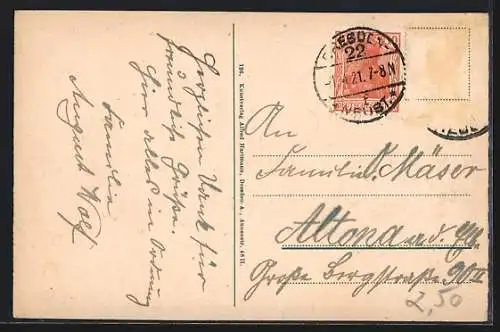 Herzlichen Dank für
freundliche Grüße.
Hier alles in Ordnung
Familie
August Wolf
126. Kunstverlag Alfred Hartmann, Dresden-A., Ammonstr.
DRESDEN-
22
21. 7-8 N
NEUST.
An
Familie Mäser
Altona a. d. Elbe
Große Bergstraße 90 II
2,50